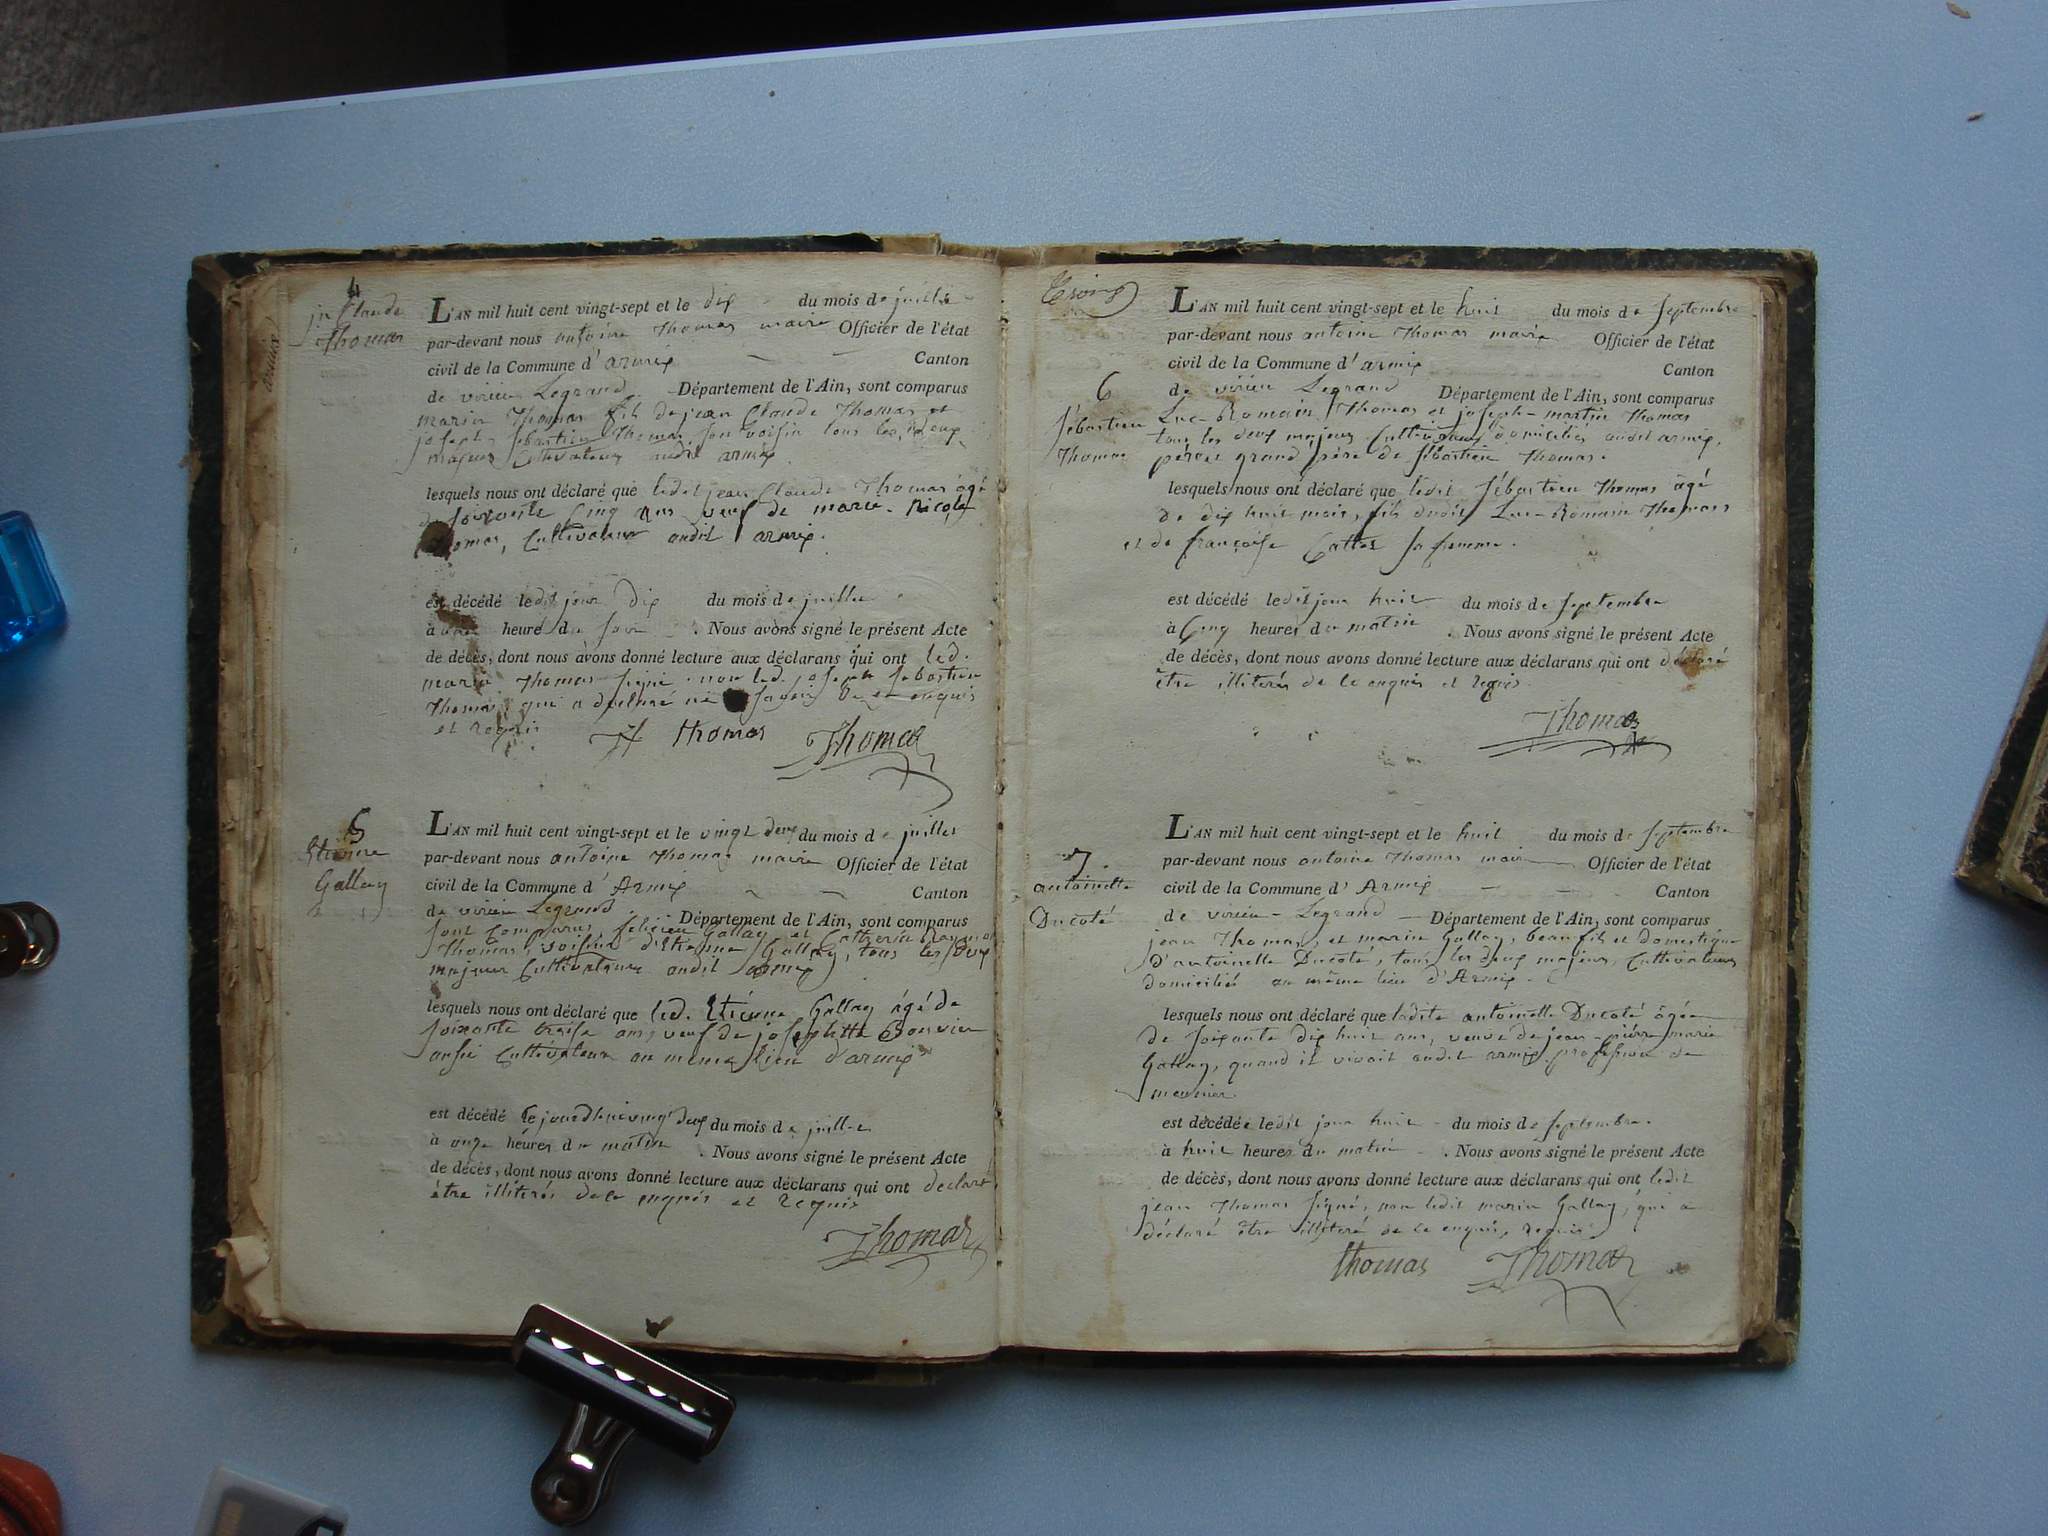 4
jn Claude
Thomas
L'AN mil huit cent vingt-sept et le dix du mois de juillet
par-devant nous antoine Thomas maire Officier de l'état
civil de la Commune d'armix Canton
de virieu Legrand Département de l'Ain, sont comparus
marin Thomas fils de jean Claude Thomas et
joseph Sébastien Thomas son voisin tous les deux
majeurs Cultivateurs audit armix.
lesquels nous ont déclaré que ledit jean Claude Thomas âgé
de soixante Cinq ans veuf de marie Nicole
Thomas, Cultivateur audit armix.
est décédé ledit jour dix du mois de juillet
à heure du soir . Nous avons signé le présent Acte
de décès, dont nous avons donné lecture aux déclarans qui ont led.
marin Thomas signé non led. joseph Sebastien
Thomas, qui a déclaré ne savoir de ce enquis
et requis
thomas Thomas
5
Etienne
Gallay
L'AN mil huit cent vingt-sept et le vingt deux du mois de juillet
par-devant nous antoine Thomas maire Officier de l'état
civil de la Commune d'Armix Canton
de virieu Legrand. Département de l'Ain, sont comparus
sont comparus, félicien Gallay et
Thomas, voisins d'Etienne Gallay, tous les deux
majeurs Cultivateurs audit armix
lesquels nous ont déclaré que led. Etienne Gallay âgé de
soixante treise ans, veuf de josephtte Bouvier
aussi Cultivateur au même lieu d'armix
est décédé le vingt deux du mois de juillet
à onze heures du matin . Nous avons signé le présent Acte
de décès, dont nous avons donné lecture aux déclarans qui ont déclaré
être illiterés de ce enquis et requis
Thomas
6
Sébastien
Thomas
L'AN mil huit cent vingt-sept et le huit du mois de Septembre
par-devant nous antoine Thomas maire Officier de l'état
civil de la Commune d'armix Canton
de virieu Legrand Département de l'Ain, sont comparus
Luc-Romain Thomas et joseph-martin Thomas
tous les deux majeurs Cultivateurs domiciliés audit armix,
père et grand père de Sébastien Thomas.
lesquels nous ont déclaré que ledit Sébastien Thomas âgé
de dix huit mois, fils dudit Luc-Romain Thomas
et de françoise sa femme.
est décédé ledit jour huit du mois de Septembre
à Cinq heures du matin . Nous avons signé le présent Acte
de décès, dont nous avons donné lecture aux déclarans qui ont déclaré
être illiterés de ce enquis et requis
Thomas
7.
antoinette
Ducoté
L'AN mil huit cent vingt-sept et le huit du mois de Septembre
par-devant nous antoine Thomas maire Officier de l'état
civil de la Commune d'Armix Canton
de virieu-Legrand Département de l'Ain, sont comparus
jean Thomas, et marin Gallay, beau fils et domestique
d'antoinette Ducoté, tous les deux majeurs, Cultivateurs
domiciliés au même lieu d'Armix.
lesquels nous ont déclaré que ladite antoinette Ducoté âgée
de soixante dix huit ans, veuve de jean-pierre marie
Gallay, quand il vivait audit armix profession de
meunier
est décédée ledit jour huit du mois de Septembre.
à huit heures du matin . Nous avons signé le présent Acte
de décès, dont nous avons donné lecture aux déclarans qui ont ledit
jean Thomas signé, non ledit marin Gallay, qui a
déclaré être illiteré de ce enquis, requis
thomas Thomas